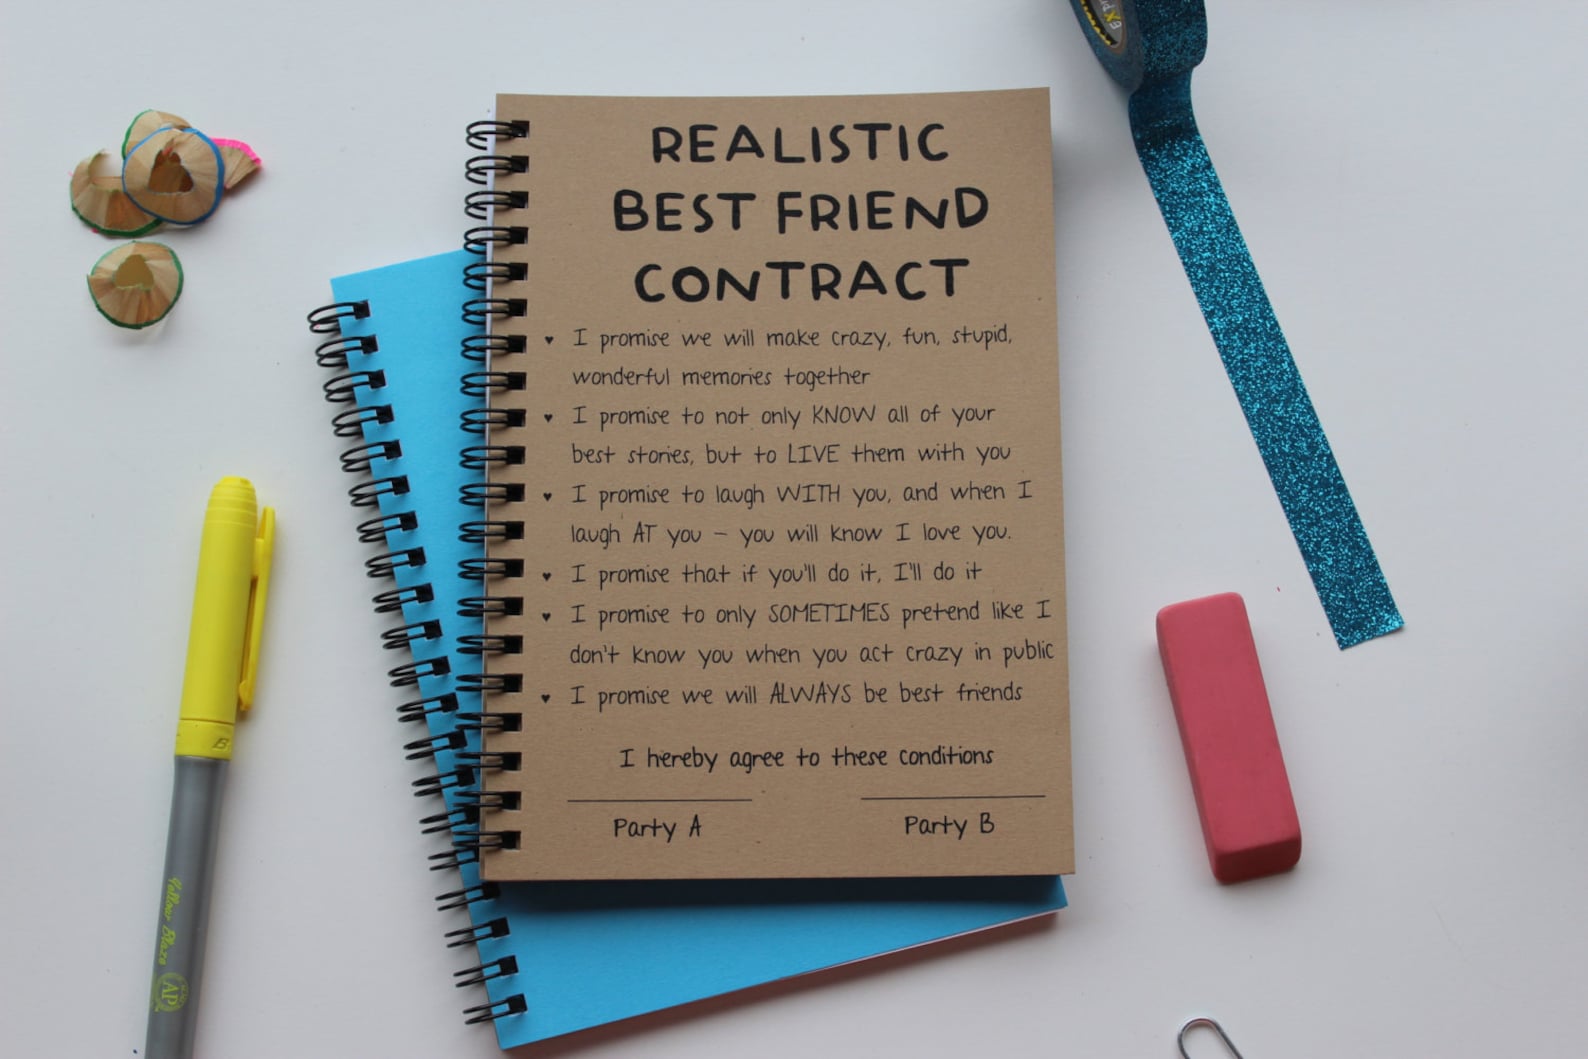 REALISTIC
BEST FRIEND
CONTRACT
♥ I promise we will make crazy, fun, stupid,
wonderful memories together
♥ I promise to not only KNOW all of your
best stories, but to LIVE them with you
♥ I promise to laugh WITH you, and when I
laugh AT you – you will know I love you.
♥ I promise that if you'll do it, I'll do it
♥ I promise to only SOMETIMES pretend like I
don't know you when you act crazy in public
♥ I promise we will ALWAYS be best friends
I hereby agree to these conditions
Party A Party B
Yellow Blaze
AP